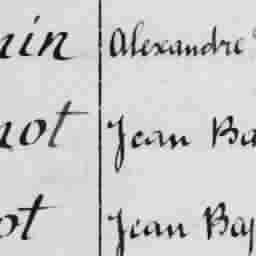 in Alexandre
not Jean Ba
ot Jean Bap